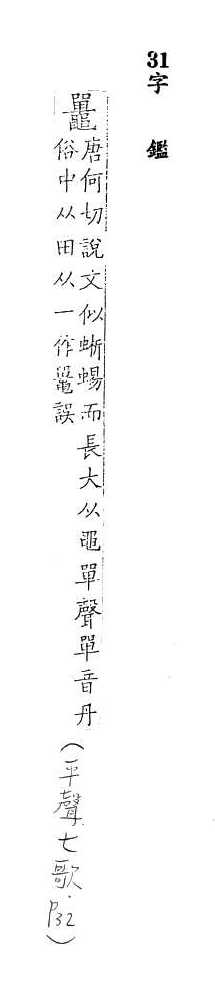 31字 鑑
鼉
唐何切說文似蜥蜴而長大从黽單聲單音丹(平聲七歌.P32)
俗中从田从一作 誤